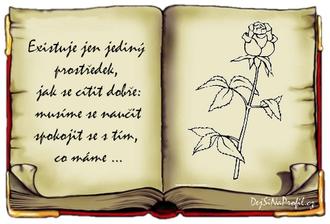 Existuje jen jediný
prostředek,
jak se cítit dobře:
musíme se naučit
spokojit se s tím,
co máme ...
DejSiNaProfil.cz